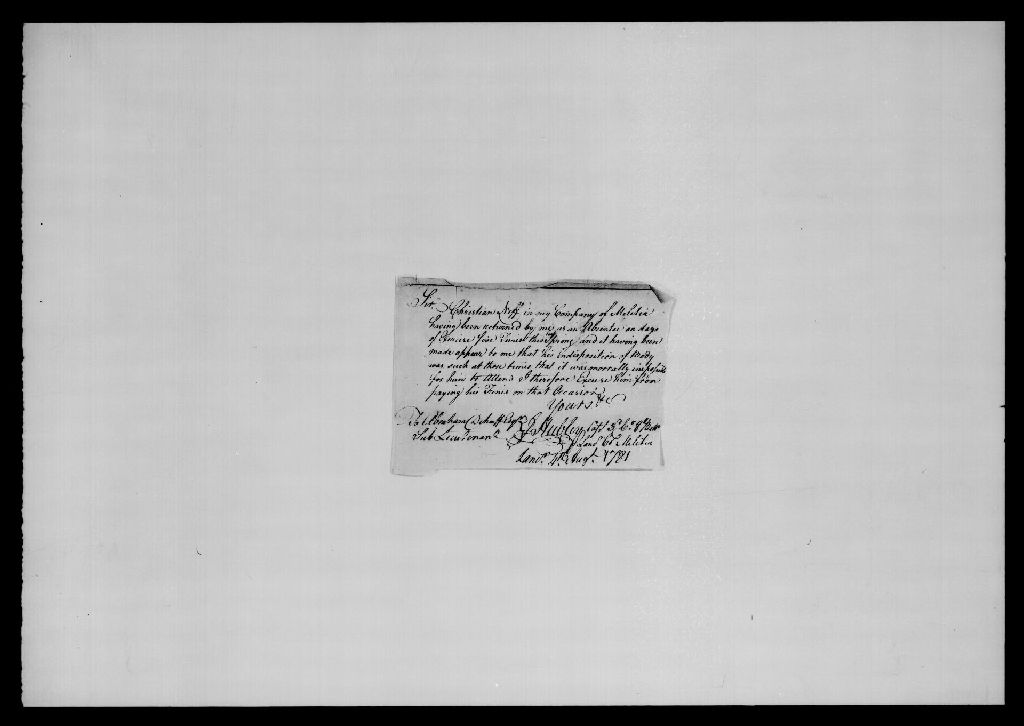 Sir, Christian Neff in my Company of Militia
having been returned by me as an Absentee on days
of Exercise five times this Spring and it having been
made appear to me that his Indisposition of Body
was such at those times, that it was morally impossible
for him to Attend I therefore Excuse him from
paying his Fines on that Occasion
Yours &c
To Abraham Dehuff Esqr
Sub Lieutenant
J Hubley Capt 3d Co 8th Batt
Lanr Cy Militia
Lanr 4th Augt. 1781